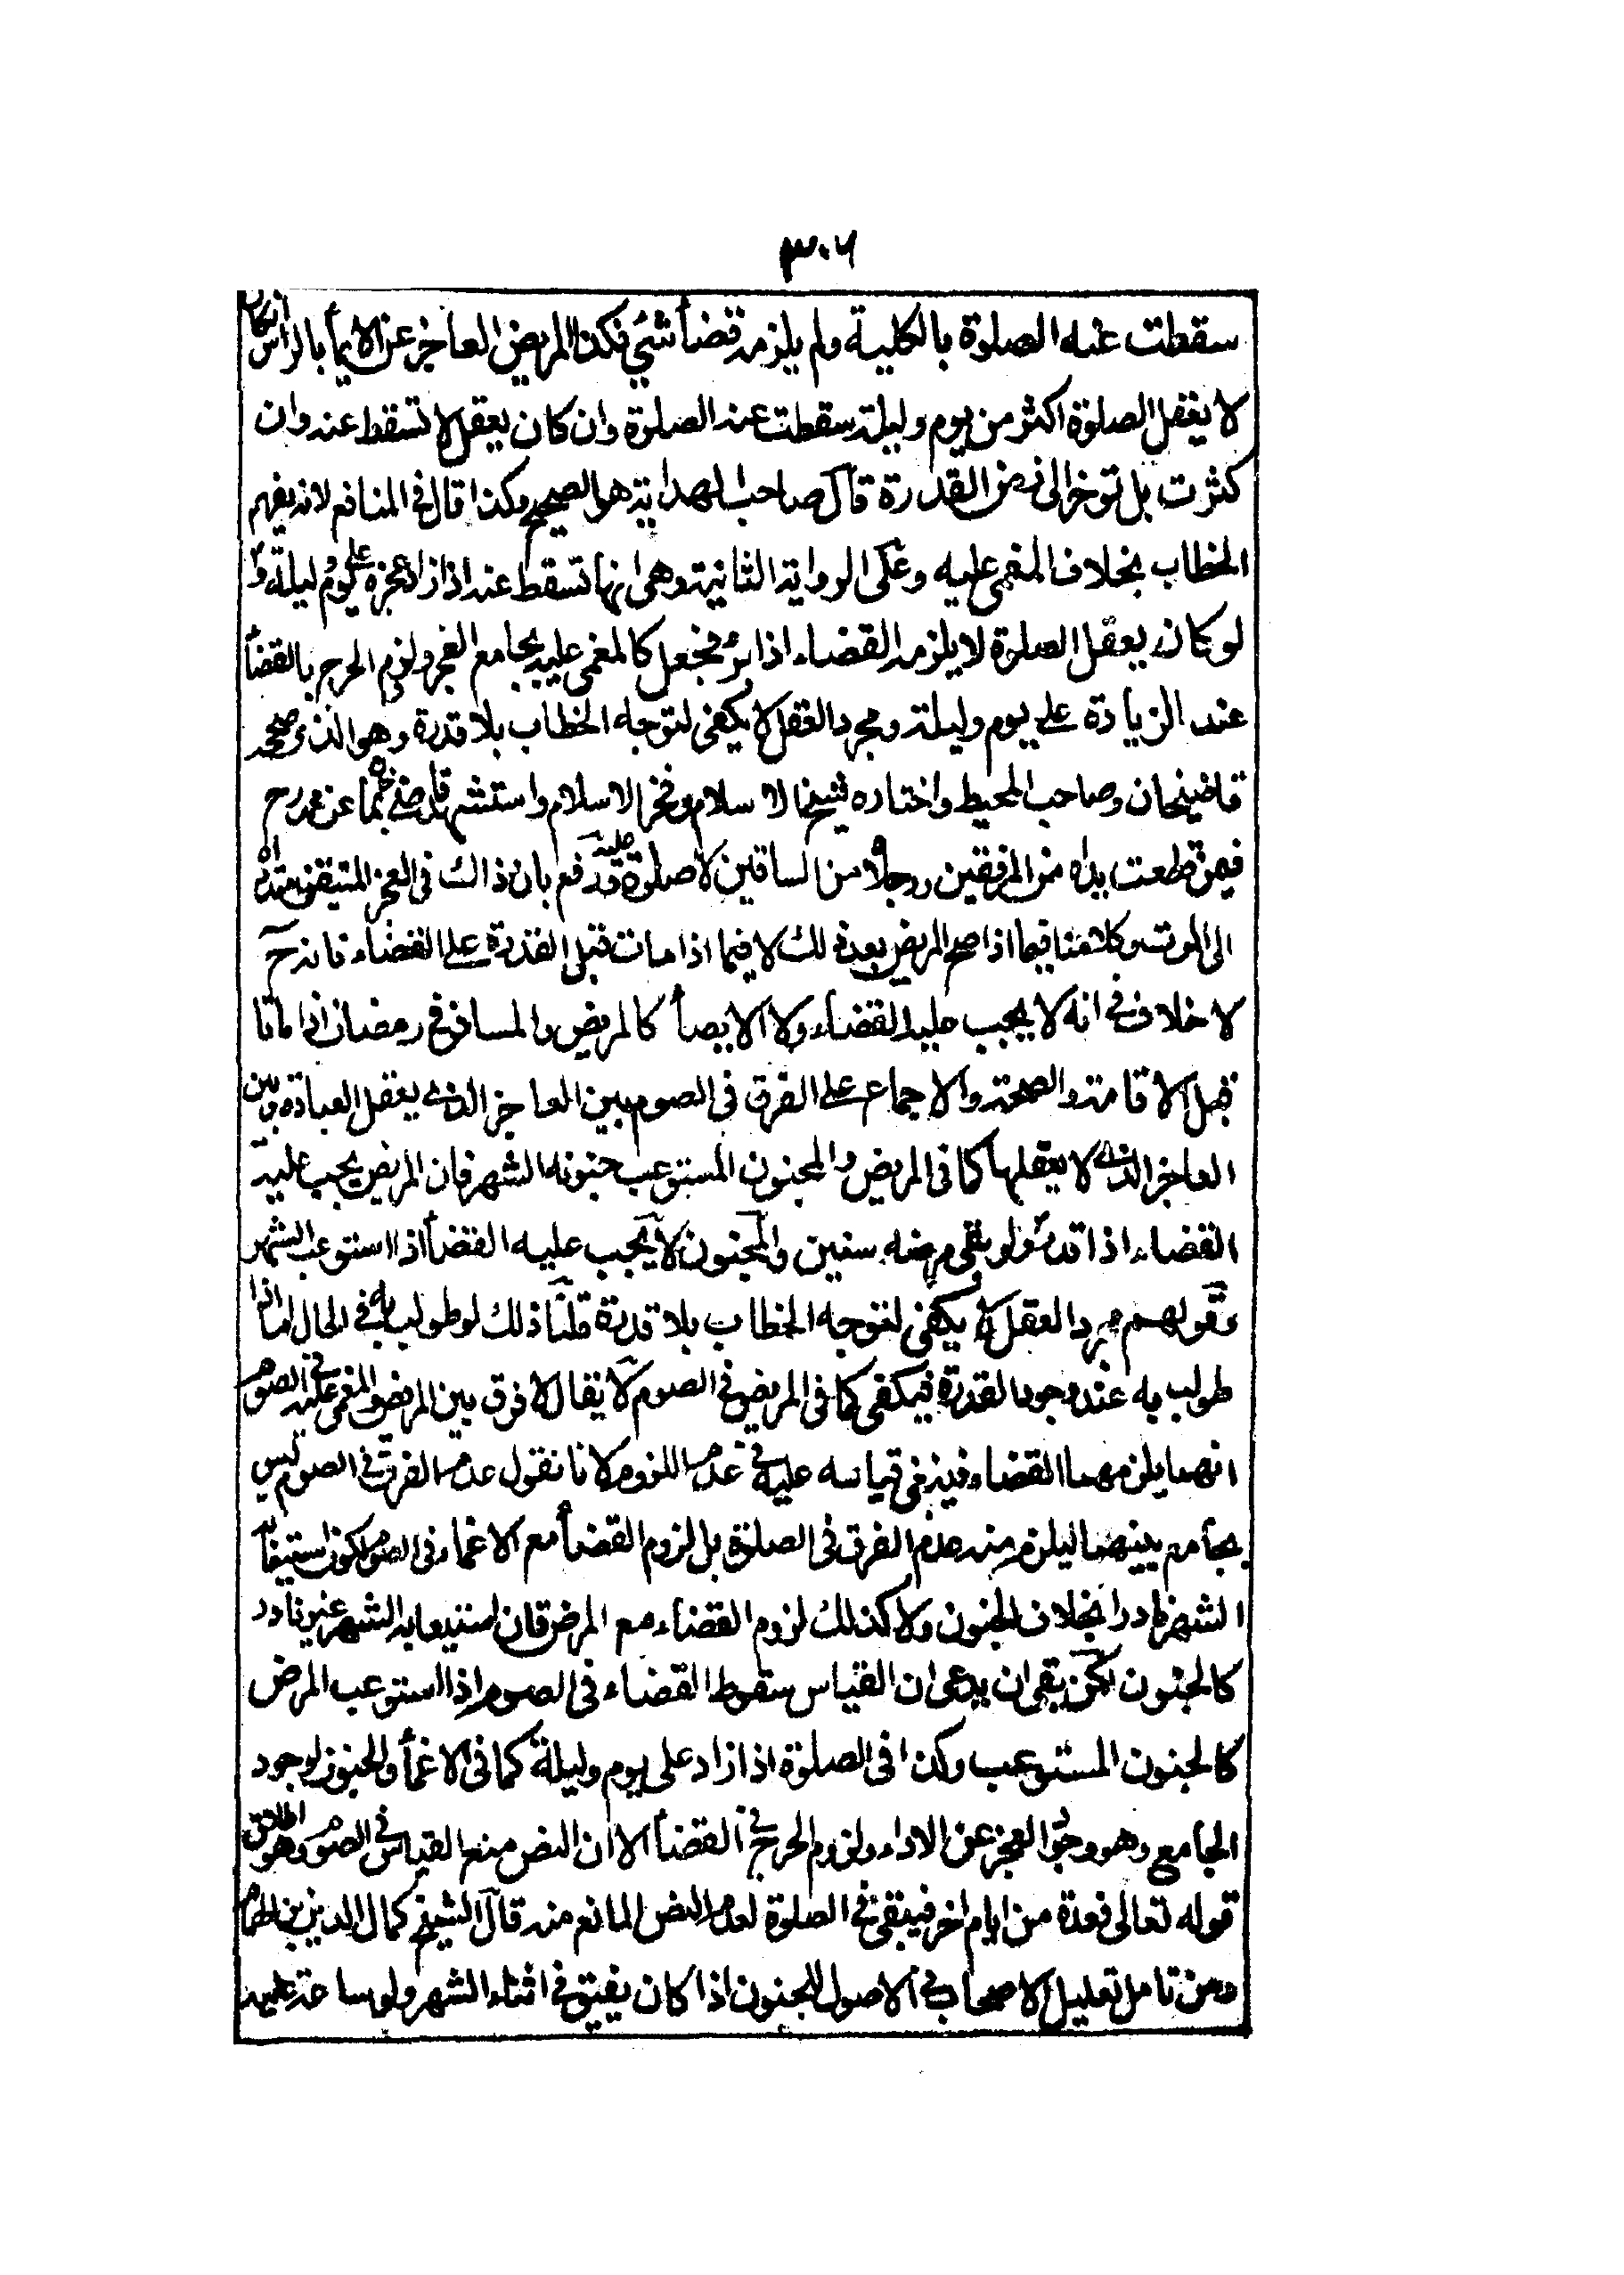 ٣٠٦
سقطت عنه الصلوة بالكلية ولم يلزمه قضأ شئ فكذا المريض العاجز عن الايمأ بالراس ان كان
لا يعقل الصلوة اكثر من يوم وليلة سقطت عنه الصلوة وان كان يعقل لا تسقط عنه وان
كثرت بل توخر الى زمن القدرة قال صاحب الهداية هو الصحيح وكذا قال فى المنافع لانه يفهم
الخطاب بخلاف المغمى عليه وعلى الرواية الثانية وهى انها تسقط عنه اذا زاد عجزه على يوم ليلة و
لو كان يعقل الصلوة لا يلزمه القضاء اذا برئ فجعل كالمغمى عليه بجامع العجز ولزم الحرج بالقضأ
عند الزيادة على يوم وليلة ومجرد العقل لا يكفى لتوجه الخطاب بلا قدرة وهو الذى صححه
قاضيخان وصاحب المحيط واختاره شيخ الاسلام وفخر الاسلام واستشهد قاضيخان بما عن محمد رح
فيمن قطعت يداه من المرفقين ورجلاه من الساقين لا صلوة عليه ودفع بان ذالك فى العجز المتيقن امتداده
الى الموت وكلامنا فيما اذا صح المريض بعد ذلك لا فيما اذا مات قبل القدرة على القضاء فانه ح
لا خلاف فى انه لا يجب عليه القضاء ولا الايصأ كالمريض والمسافر فى رمضان اذا ماتا
قبل الاقامة والصحة والاجماع على الفرق فى الصوم بين العاجز الذى يعقل العبادة وبين
العاجز الذى لا يعقلها كما فى المريض والمجنون المستوعب جنونه الشهر فان المريض يجب عليه
القضاء اذا قدر ولو بقى مرضه سنين والمجنون لا يجب عليه القضأ اذا استوعب الشهر
وقولهم مجرد العقل لا يكفى لتوجه الخطاب بلا قدرة قلنا ذلك لو طولب به فى الحال اما اذا
طولب به عند وجود القدرة فيكفى كما فى المريض فى الصوم لا يقال لا فرق بين المريض والمغمى عليه فى الصوم
انهما يلزمهما القضاء فينبغى قياسه عليه فى عدم اللزوم لانا نقول عدم الفرق فى الصوم ليس
بجامع بينهما ليلزم منه عدم الفرق فى الصلوة بل لزوم القضأ مع الاغماء فى الصوم لكون استيعاب
الشهر نادرا بخلاف الجنون ولا كذلك لزوم القضاء مع المرض فان استيعابه الشهر غير نادر
كالجنون لكن بقى ان يدعى ان القياس سقوط القضاء فى الصوم اذا استوعب المرض
كالجنون المستوعب وكذا فى الصلوة اذا زاد على يوم وليلة كما فى الاغمأ والجنون لوجود
الجامع وهو وجود العجز عن الاداء ولزوم الحرج فى القضأ الا ان النص منع القياس فى الصوم وهو اطلاق
قوله تعالى فعدة من ايام اخر فيبقى فى الصلوة لعدم النص المانع منه قال الشيخ كمال الدين بن الهمام
ومن تامل تعليل الاصحاب فى الاصول المجنون اذا كان يفيق فى اثناء الشهر ولو ساعة عليه